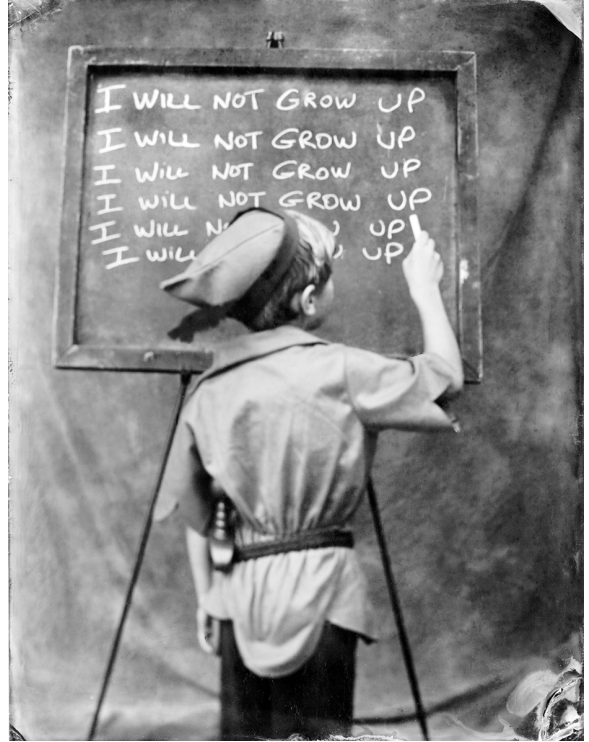 I WILL NOT GROW UP
I WILL NOT GROW UP
I WILL NOT GROW UP
I WILL NOT GROW UP
I WILL UP
I WILL UP